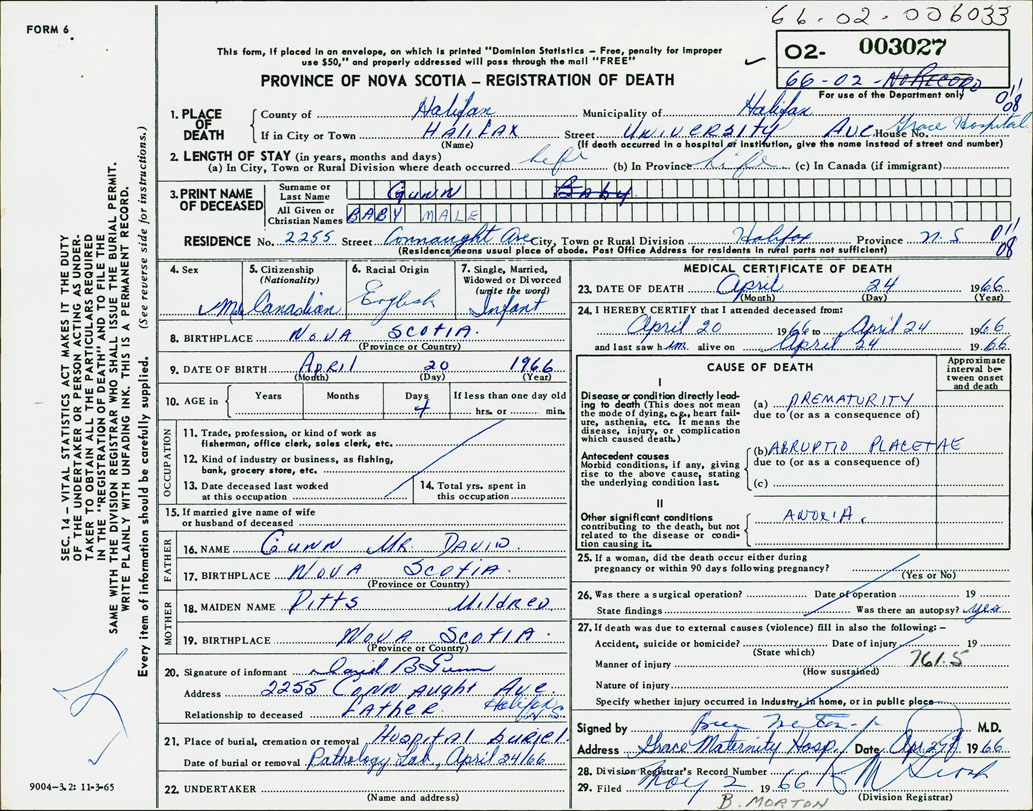 66-02-006033
FORM 6
This form, if placed in an envelope, on which is printed "Dominion Statistics – Free, penalty for improper
use $50," and properly addressed will pass through the mail "FREE"
PROVINCE OF NOVA SCOTIA – REGISTRATION OF DEATH
02- 003027
66-02-NO RECORD
For use of the Department only
01/08
1. PLACE OF DEATH
County of Halifax Municipality of Halifax
If in City or Town HALIFAX Street UNIVERSITY AVE House No. Grace Hospital
(Name) (If death occurred in a hospital or institution, give the name instead of street and number)
2. LENGTH OF STAY (in years, months and days)
(a) In City, Town or Rural Division where death occurred life (b) In Province life (c) In Canada (if immigrant)
3. PRINT NAME OF DECEASED
Surname or Last Name GUNN BABY
All Given or Christian Names BABY MALE
RESIDENCE No. 2255 Street Connaught Ave City, Town or Rural Division Halifax Province N.S 01/08
(Residence means usual place of abode. Post Office Address for residents in rural parts not sufficient)
4. Sex
5. Citizenship (Nationality) Canadian
6. Racial Origin English
7. Single, Married, Widowed or Divorced (write the word) Infant
8. BIRTHPLACE NOVA SCOTIA.
(Province or Country)
9. DATE OF BIRTH APRIL 20 1966
(Month) (Day) (Year)
10. AGE in Years Months Days 4 If less than one day old
hrs. or min.
OCCUPATION
11. Trade, profession, or kind of work as
fisherman, office clerk, sales clerk, etc.
12. Kind of industry or business, as fishing,
bank, grocery store, etc.
13. Date deceased last worked
at this occupation
14. Total yrs. spent in
this occupation
15. If married give name of wife
or husband of deceased
FATHER
16. NAME GUNN MR. DAVID.
17. BIRTHPLACE NOVA SCOTIA.
(Province or Country)
MOTHER
18. MAIDEN NAME PITTS MILDRED
19. BIRTHPLACE NOVA SCOTIA.
(Province or Country)
20. Signature of informant David B Gunn
Address 2255 Connaught Ave. Halifax N.S.
Relationship to deceased FATHER
21. Place of burial, cremation or removal HOSPITAL BURIEL.
Date of burial or removal Pathology Lab, April 24/66
22. UNDERTAKER
(Name and address)
MEDICAL CERTIFICATE OF DEATH
23. DATE OF DEATH April 24 1966
(Month) (Day) (Year)
24. I HEREBY CERTIFY that I attended deceased from:
April 20 1966 to April 24 1966
and last saw him alive on April 24 1966
CAUSE OF DEATH
Approximate interval between onset and death
I
Disease or condition directly leading to death (This does not mean the mode of dying, e.g., heart failure, asthenia, etc. It means the disease, injury, or complication which caused death.)
(a) PREMATURITY
due to (or as a consequence of)
Antecedent causes
Morbid conditions, if any, giving rise to the above cause, stating the underlying condition last.
(b) ABRUPTIO PLACETAE
due to (or as a consequence of)
(c)
II
Other significant conditions
contributing to the death, but not related to the disease or condition causing it.
ANOXIA.
25. If a woman, did the death occur either during
pregnancy or within 90 days following pregnancy?
(Yes or No)
26. Was there a surgical operation? Date of operation 19
State findings Was there an autopsy? yes
27. If death was due to external causes (violence) fill in also the following: –
Accident, suicide or homicide? Date of injury 19
(State which)
Manner of injury 761.5
(How sustained)
Nature of injury
Specify whether injury occurred in industry, in home, or in public place
Signed by M.D.
Address Grace Maternity Hosp. Date Apr. 24 1966
28. Division Registrar's Record Number
29. Filed May 2 1966
(Division Registrar)
B. MORTON
SEC. 14 – VITAL STATISTICS ACT MAKES IT THE DUTY
OF THE UNDERTAKER OR PERSON ACTING AS UNDER-
TAKER TO OBTAIN ALL THE PARTICULARS REQUIRED
IN THE "REGISTRATION OF DEATH" AND TO FILE THE
SAME WITH THE DIVISION REGISTRAR WHO SHALL ISSUE THE BURIAL PERMIT.
WRITE PLAINLY WITH UNFADING INK. THIS IS A PERMANENT RECORD.
Every item of information should be carefully supplied. (See reverse side for instructions.)
9004-3.2: 11-3-65